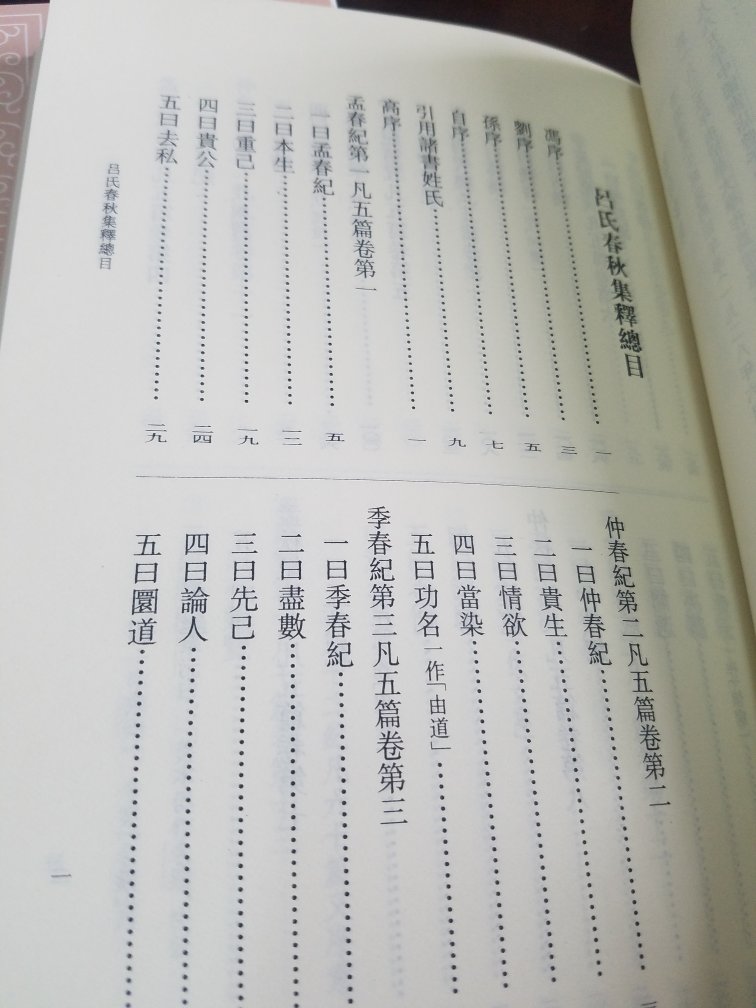 呂氏春秋集釋總目
馮序……一
劉序……三
孫序……五
自序……七
引用諸書姓氏……九
高序……一
孟春紀第一凡五篇卷第一
一曰孟春紀……五
二曰本生……一二
三曰重己……一九
四曰貴公……二四
五曰去私……二九
仲春紀第二凡五篇卷第二
一曰仲春紀……
二曰貴生……
三曰情欲……
四曰當染……
五曰功名一作「由道」……
季春紀第三凡五篇卷第三
一曰季春紀……
二曰盡數……
三曰先己……
四曰論人……
五曰圜道……
呂氏春秋集釋總目
一